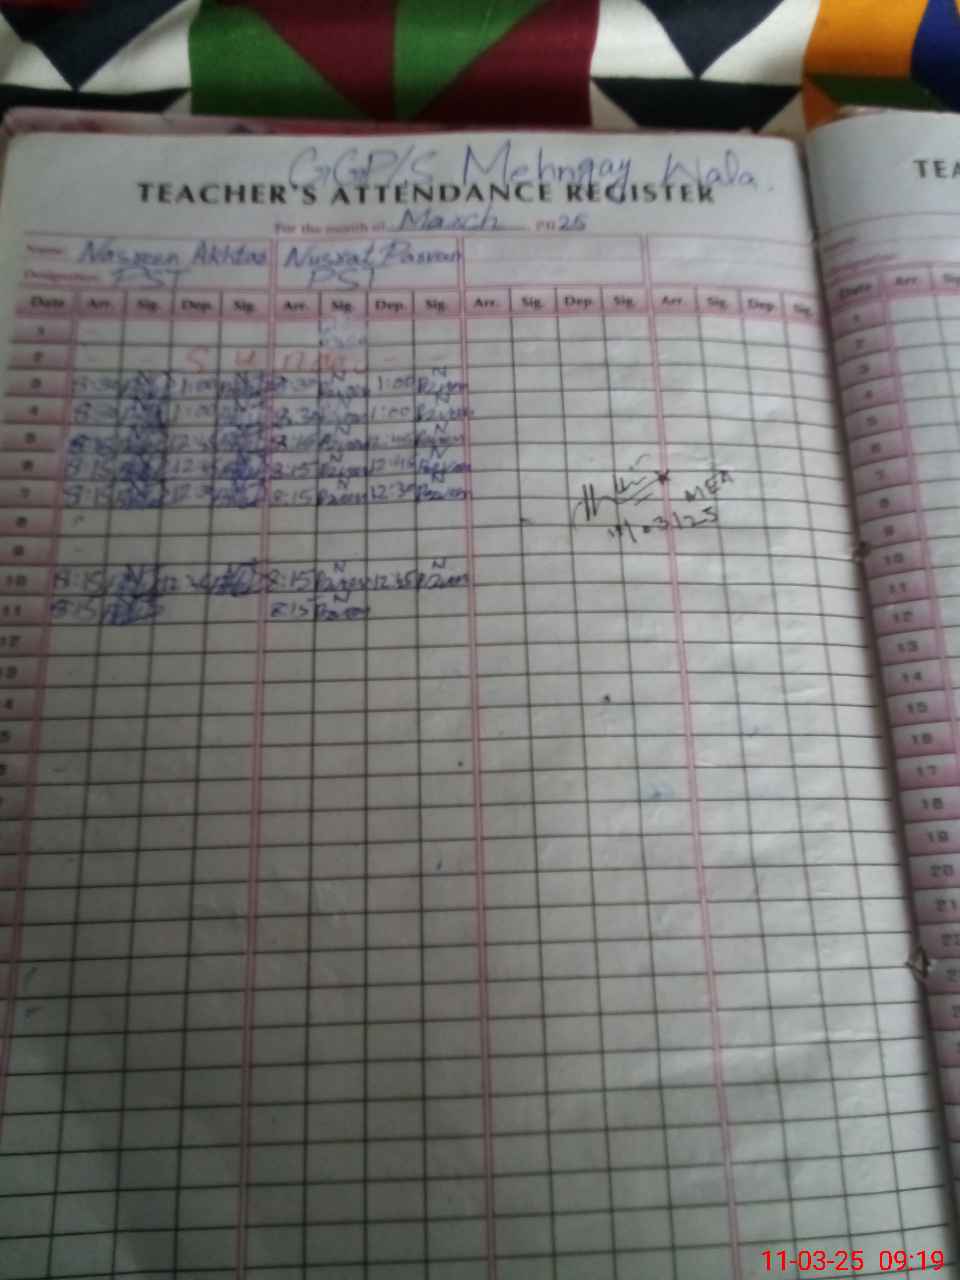 GGP/S Mehngay Wala.
TEACHER'S ATTENDANCE REGISTER
For the month of March 2025
Name Nasreen Akhtar Nusrat Parveen
Designation PST PST
Date Arr. Sig. Dep. Sig. Arr. Sig. Dep. Sig. Arr. Sig. Dep. Sig. Arr. Sig. Dep. Sig.
1
2 Sunday
3 8:30 1:00 8:30 N Parveen 1:00 N Parveen
4 8:30 1:00 8:30 N Parveen 1:00 N Parveen
5 8:15 12:45 8:15 N Parveen 12:45 N Parveen
6 8:15 12:45 8:15 N Parveen 12:45 N Parveen
7 8:15 12:30 8:15 N Parveen 12:30 N Parveen
MEA
11/03/25
8
9
10 8:15 12:45 8:15 N Parveen 12:45 N Parveen
11 8:15 8:15 N Parveen
12
13
TEA
Date Arr. Sig
1
2
3
4
5
6
7
8
9
10
11
12
13
14
15
16
17
18
19
20
21
22
11-03-25 09:19